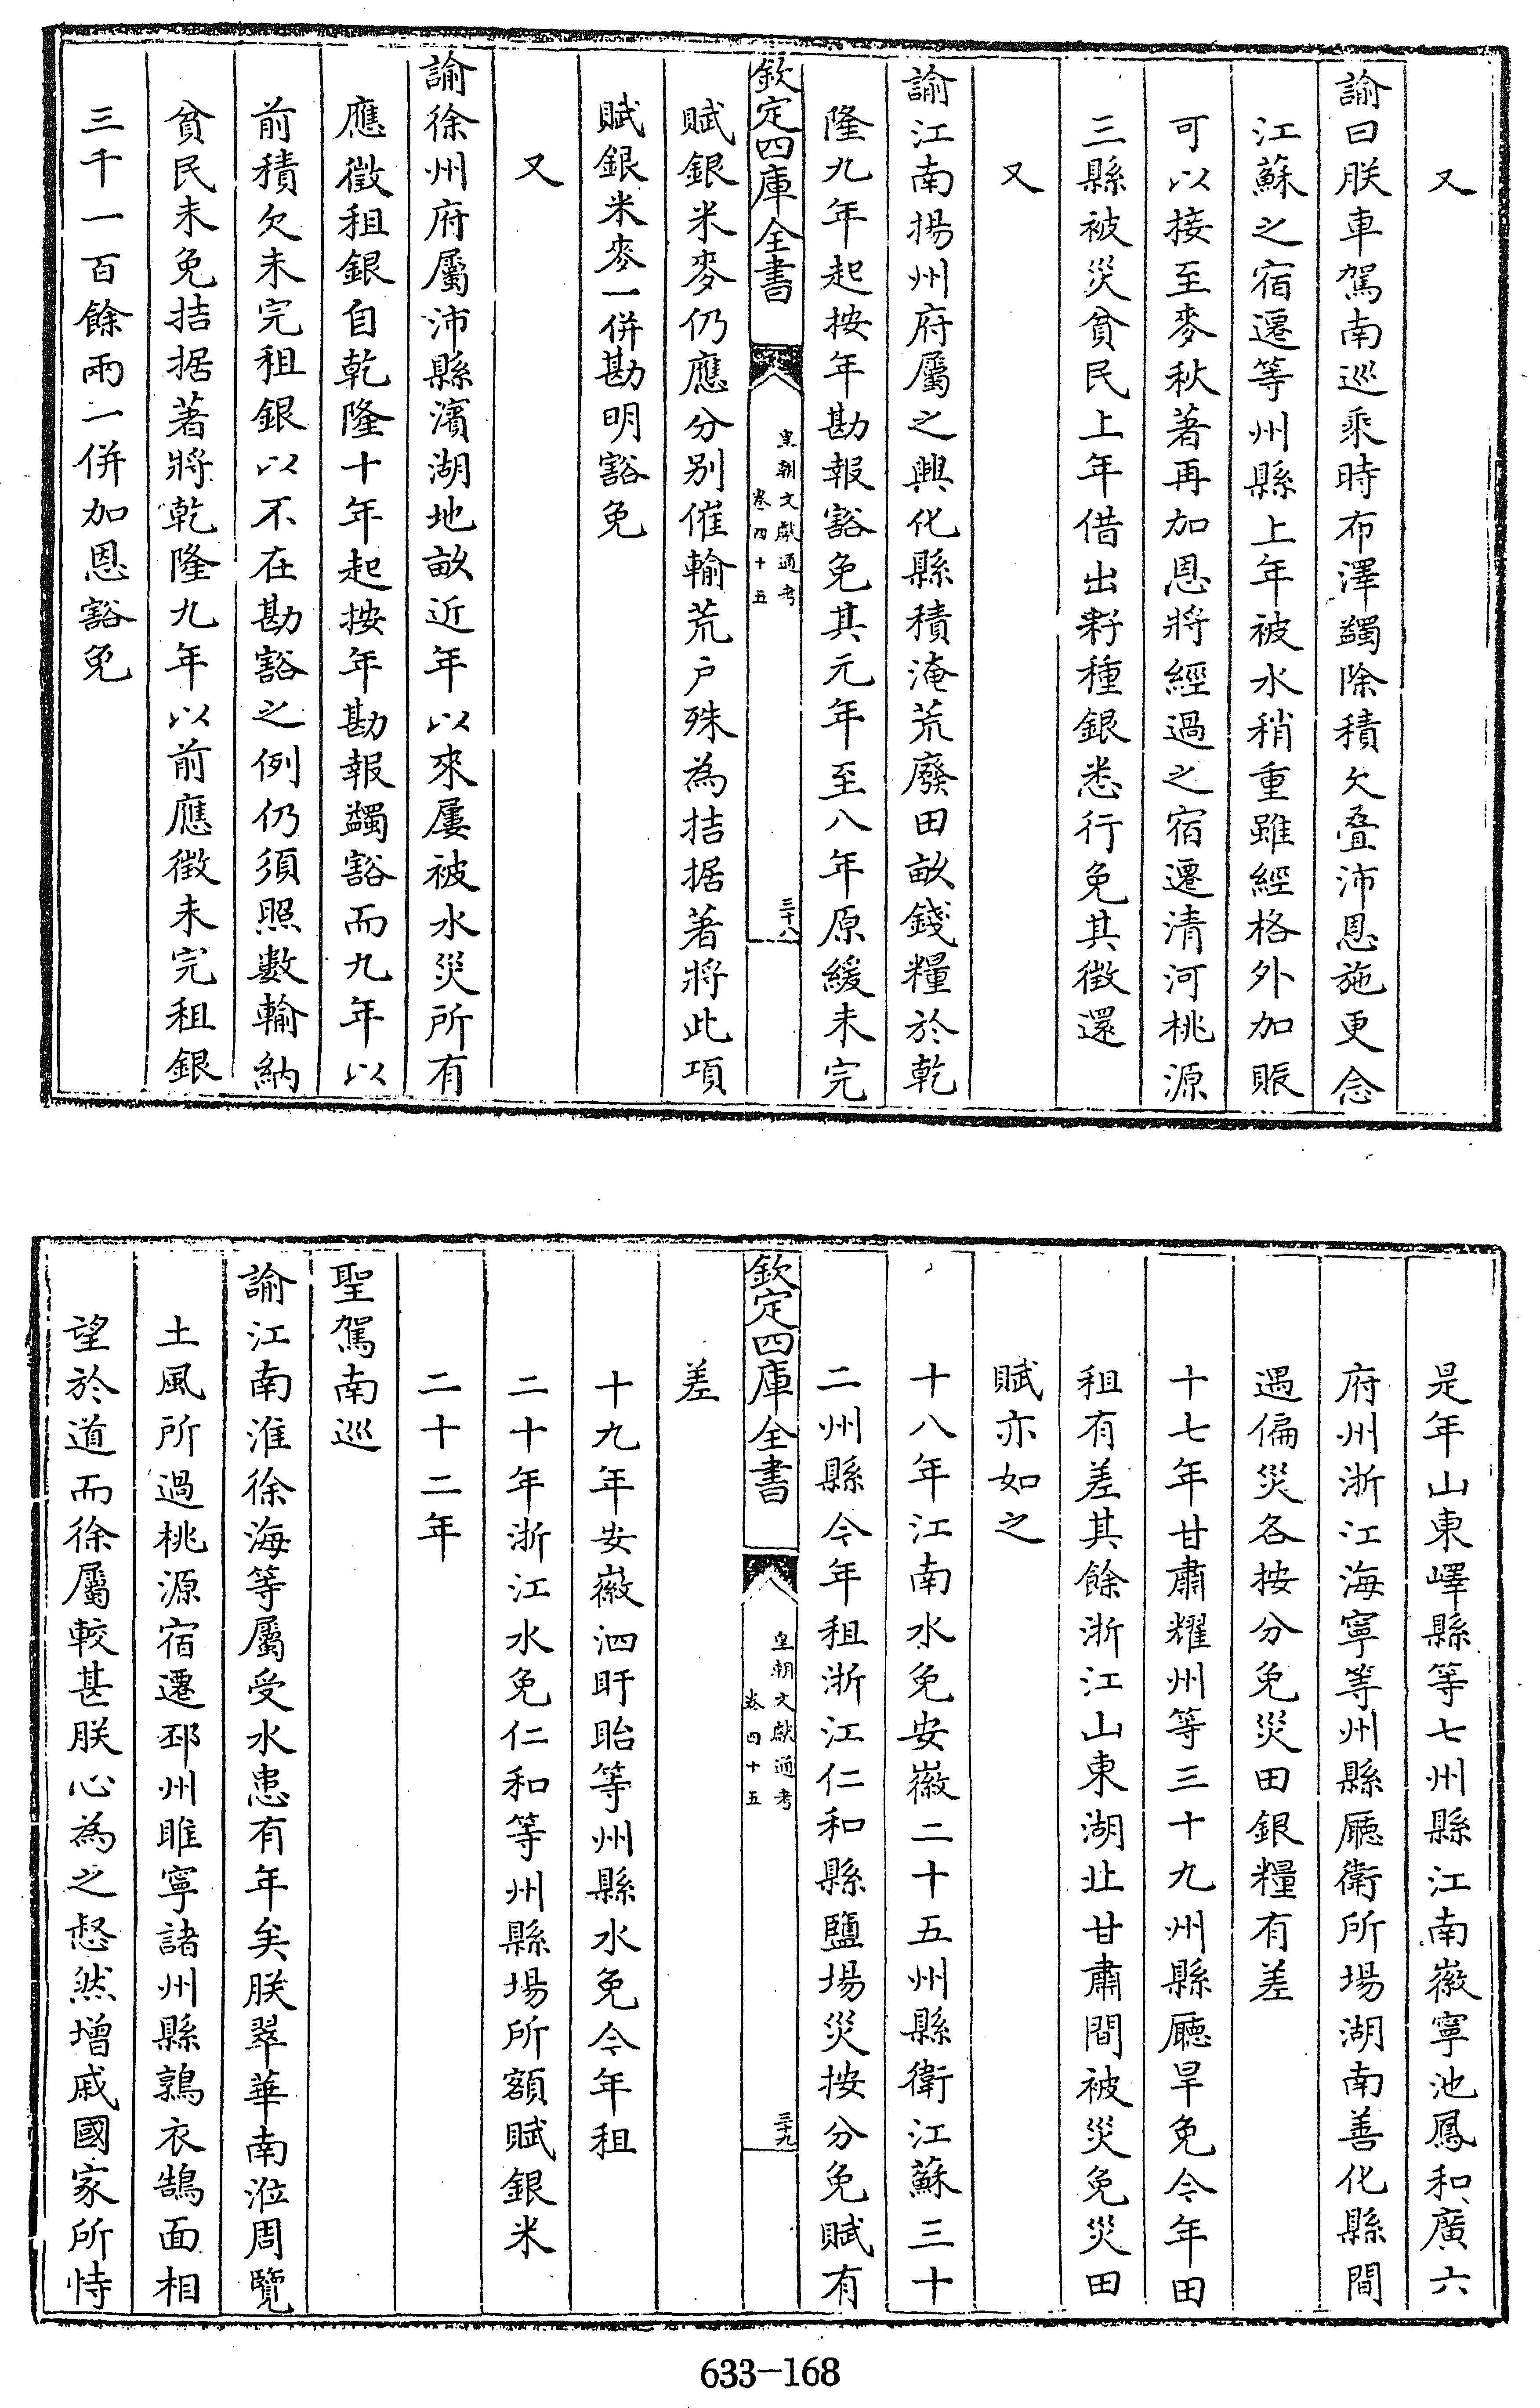 又
諭曰朕車駕南巡乘時布澤蠲除積欠叠沛恩施更念
江蘇之宿遷等州縣上年被水稍重雖經格外加賑
可以接至麥秋著再加恩將經過之宿遷清河桃源
三縣被災貧民上年借出籽種銀悉行免其徵還
又
諭江南揚州府屬之興化縣積淹荒廢田畝錢糧於乾
隆九年起按年勘報豁免其元年至八年原緩未完
欽定四庫全書
皇朝文獻通考
卷四十五
三十八
賦銀米麥仍應分别催輸荒户殊為拮据著將此項
賦銀米麥一併勘明豁免
又
諭徐州府屬沛縣濱湖地畝近年以來屢被水災所有
應徵租銀自乾隆十年起按年勘報蠲豁而九年以
前積欠未完租銀以不在勘豁之例仍須照數輸納
貧民未免拮据著將乾隆九年以前應徵未完租銀
三千一百餘兩一併加恩豁免
是年山東嶧縣等七州縣江南徽寧池鳳和廣六
府州浙江海寧等州縣廳衛所場湖南善化縣間
遇偏災各按分免災田銀糧有差
十七年甘肅耀州等三十九州縣廳旱免今年田
租有差其餘浙江山東湖北甘肅間被災免災田
賦亦如之
十八年江南水免安徽二十五州縣衛江蘇三十
二州縣今年租浙江仁和縣鹽場災按分免賦有
欽定四庫全書
皇朝文獻通考
卷四十五
三十九
差
十九年安徽泗盱眙等州縣水免今年租
二十年浙江水免仁和等州縣場所額賦銀米
二十二年
聖駕南巡
諭江南淮徐海等屬受水患有年矣朕翠華南涖周覽
土風所過桃源宿遷邳州睢寧諸州縣鶉衣鵠面相
望於道而徐屬較甚朕心為之惄然增戚國家所恃
633-168